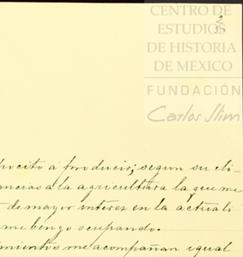 CENTRO DE
ESTUDIOS
DE HISTORIA
DE MEXICO
FUNDACIÓN
Carlos Slim
á producir; segun su cli-
á la agricultura la que me
de mayor interes en la actuali
me bengo ocupando.
me acompañan igual